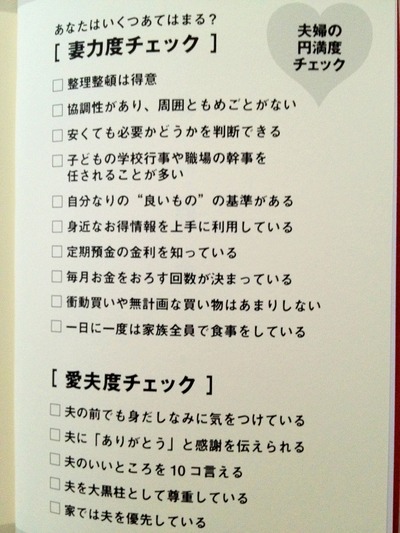 あなたはいくつあてはまる?
[ 妻力度チェック ]
夫婦の
円満度
チェック
□ 整理整頓は得意
□ 協調性があり、周囲ともめごとがない
□ 安くても必要かどうかを判断できる
□ 子どもの学校行事や職場の幹事を
任されることが多い
□ 自分なりの“良いもの”の基準がある
□ 身近なお得情報を上手に利用している
□ 定期預金の金利を知っている
□ 毎月お金をおろす回数が決まっている
□ 衝動買いや無計画な買い物はあまりしない
□ 一日に一度は家族全員で食事をしている
[ 愛夫度チェック ]
□ 夫の前でも身だしなみに気をつけている
□ 夫に「ありがとう」と感謝を伝えられる
□ 夫のいいところを10コ言える
□ 夫を大黒柱として尊重している
□ 家では夫を優先している